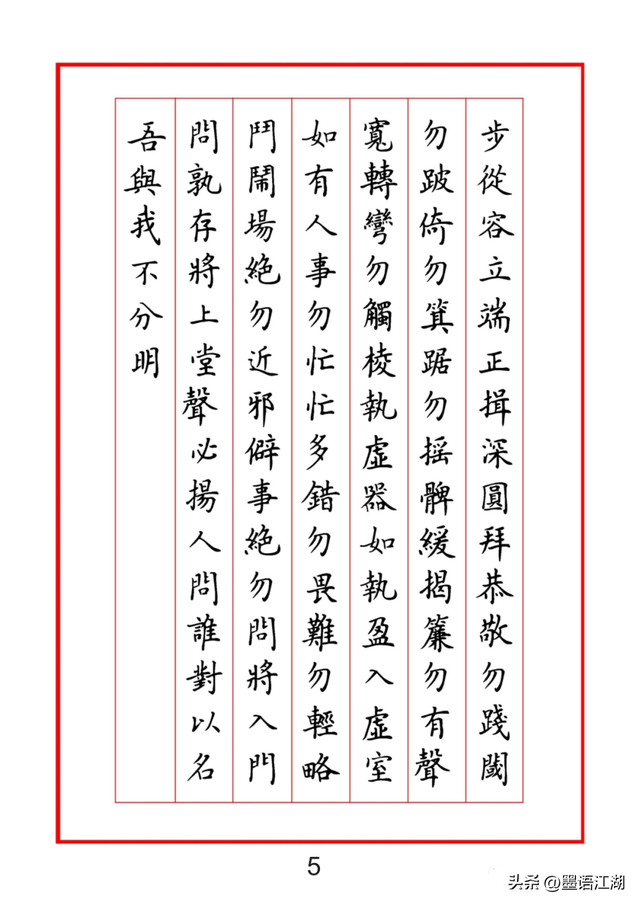 步從容立端正揖深圓拜恭敬勿踐閾
勿跛倚勿箕踞勿摇髀緩揭簾勿有聲
寬轉彎勿觸棱執虛器如執盈入虛室
如有人事勿忙忙多錯勿畏難勿輕略
鬥鬧場絶勿近邪僻事絶勿問將入門
問孰存將上堂聲必揚人問誰對以名
吾與我不分明
5
头条 @墨语江湖